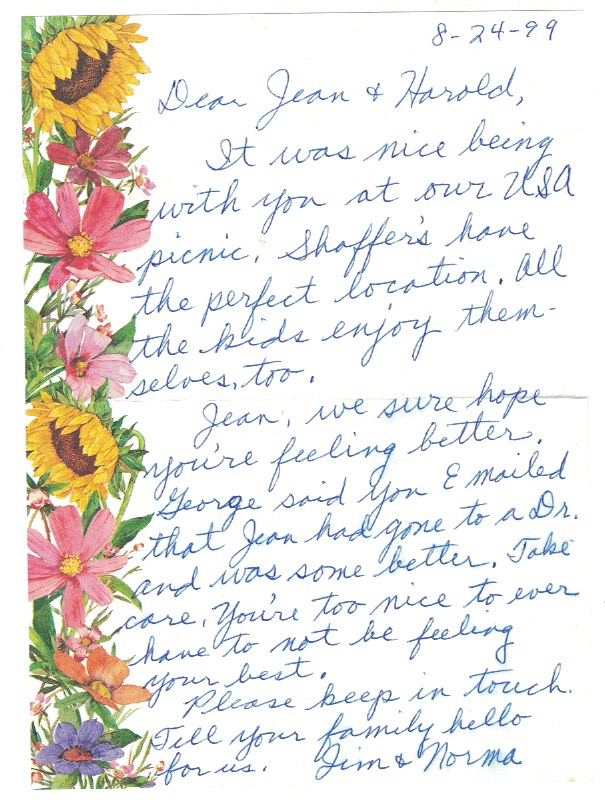 8-24-99
Dear Jean & Harold,
It was nice being
with you at our USA
picnic. Shaffer's have
the perfect location. All
the kids enjoy them-
selves, too.
Jean, we sure hope
you're feeling better.
George said you E mailed
that Jean had gone to a Dr.
and was some better. Take
care. You're too nice to ever
have to not be feeling
your best.
Please keep in touch.
Tell your family hello
for us. Jim & Norma